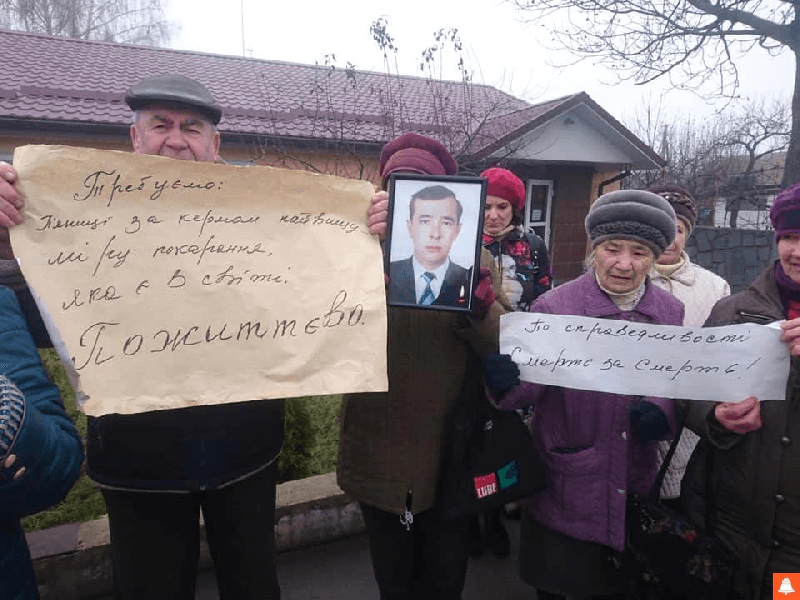 Требуємо:
Пениці за кермом найвищу
міру покарання,
яка є в світі.
Пожиттєво.
По справедливості
Смерть за Смерть!
LUBE